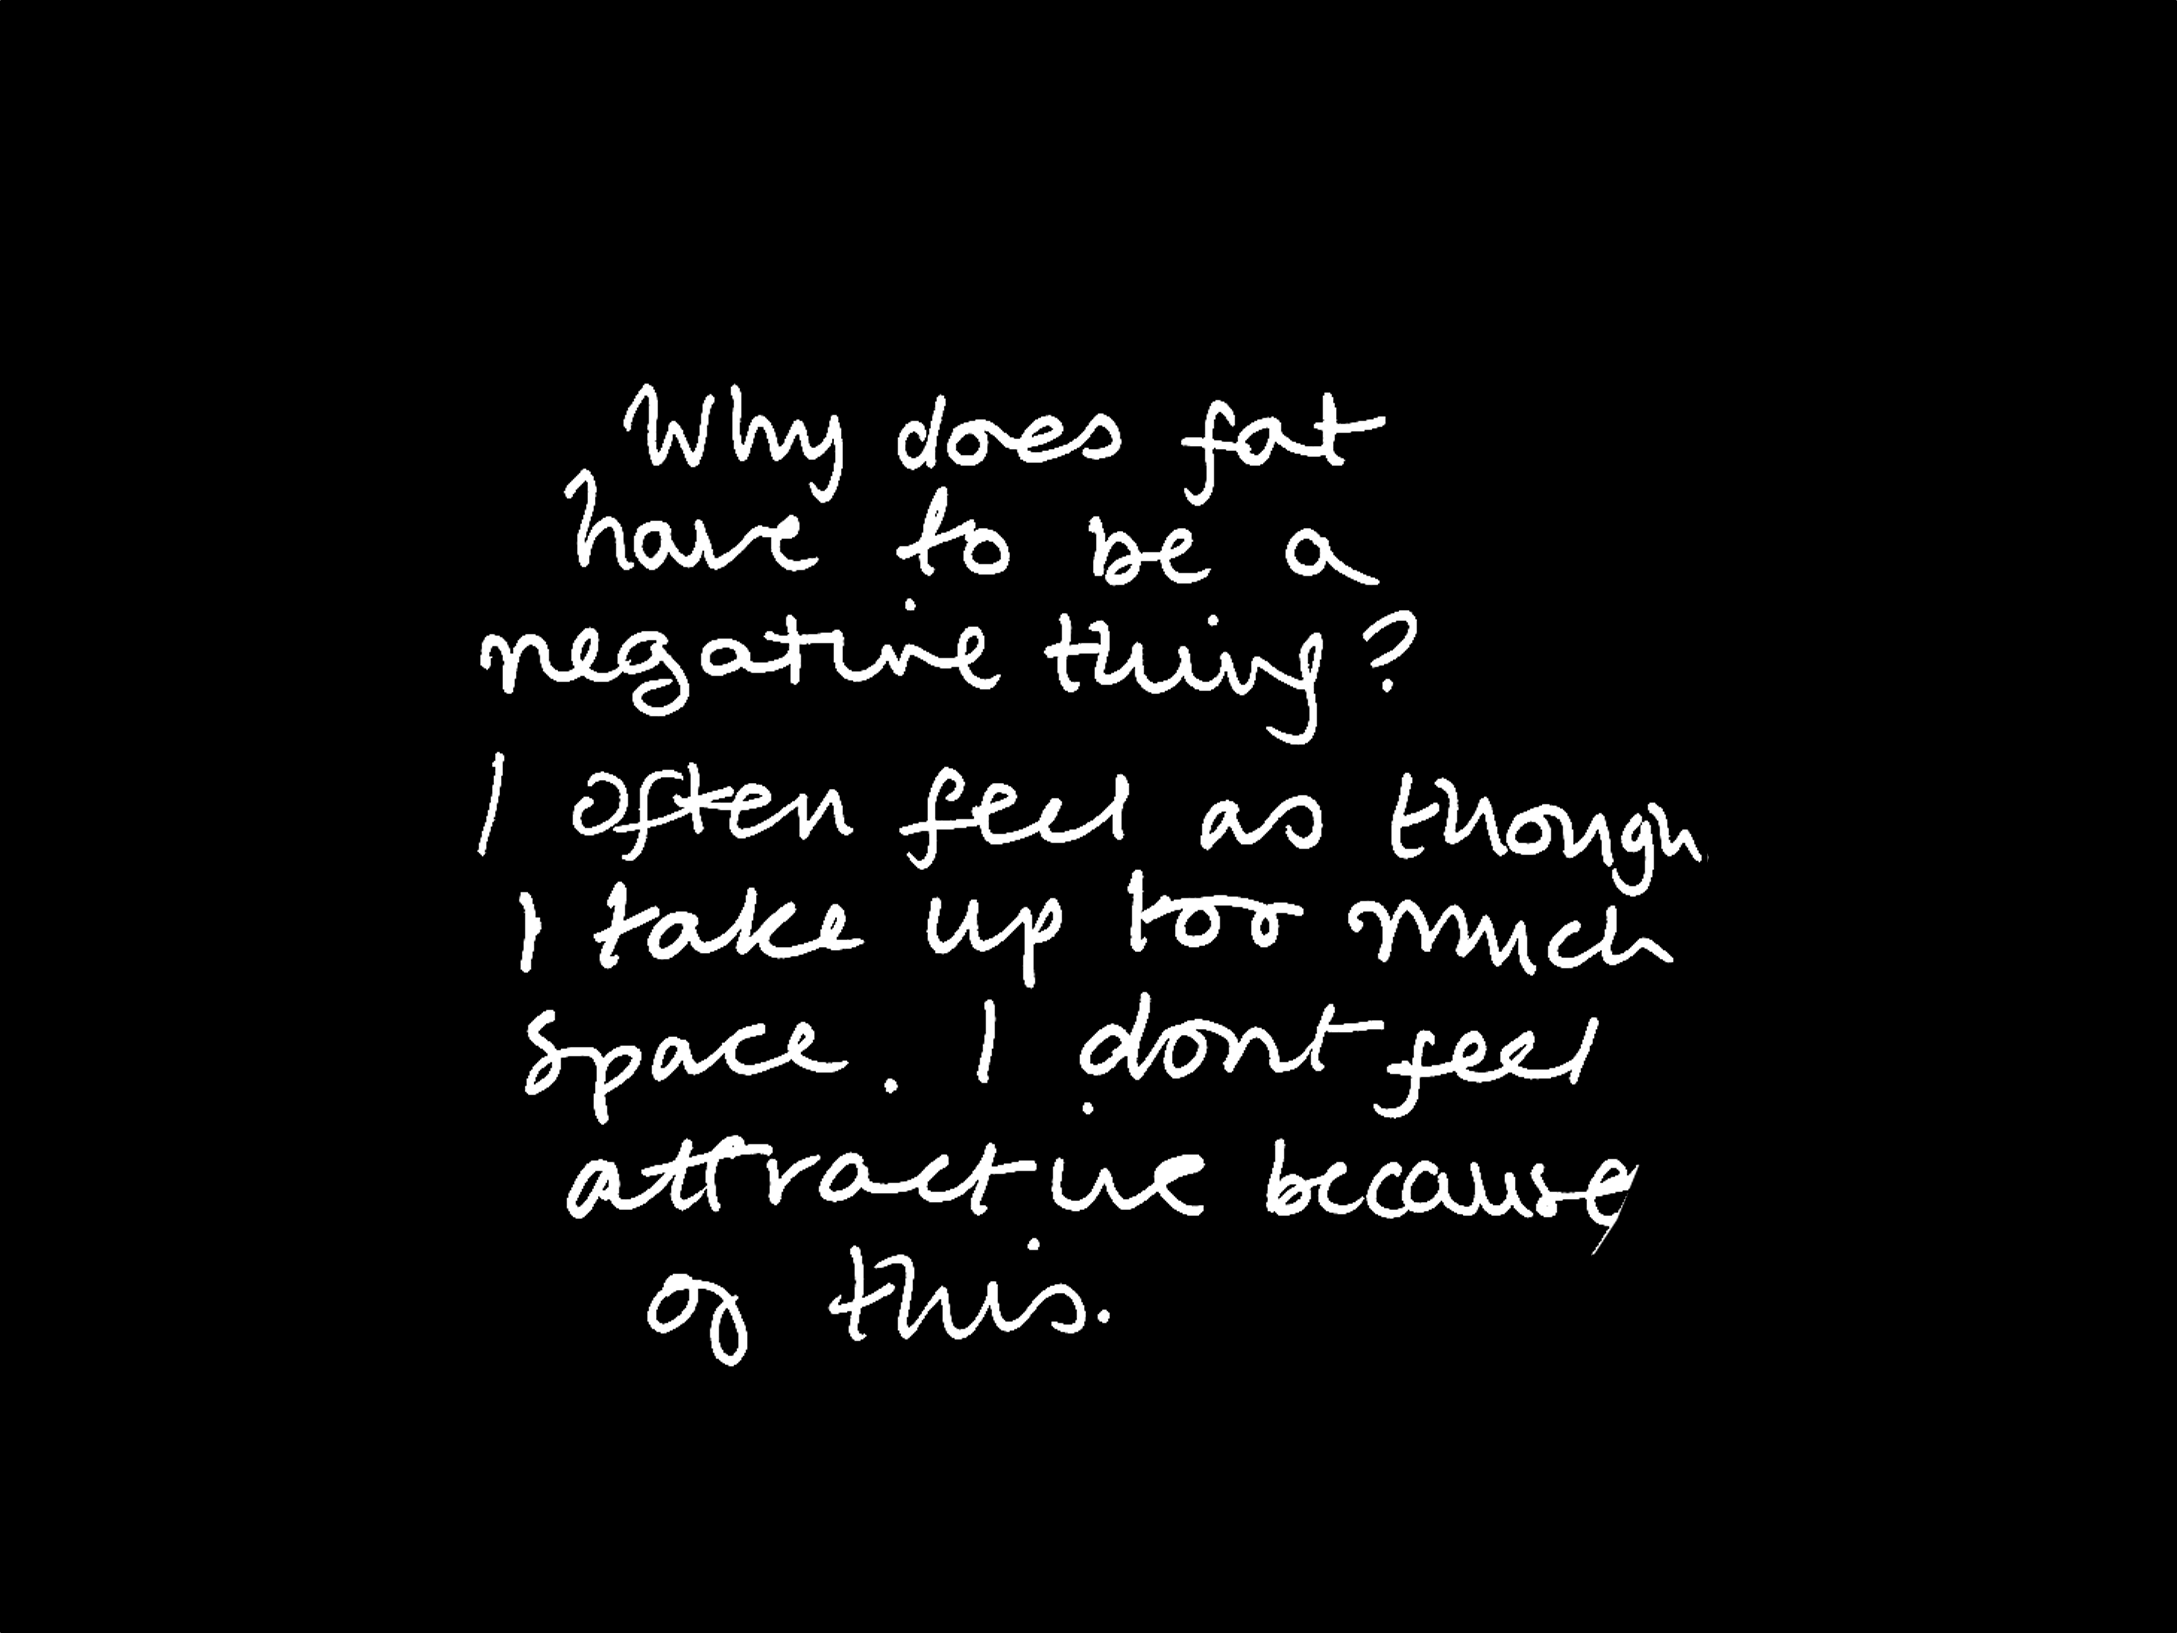 Why does fat
have to be a
negative thing?
I often feel as though
I take up too much
space. I dont feel
attractive because
of this.